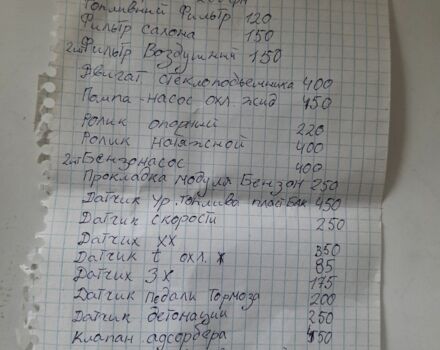 Топливный Фильтр 120
Фильтр салона 150
2шт Фильтр Воздушный 150
Двигат стеклоподьемника 400
Пампа-насос охл. жид 450
Ролик опорный 220
Ролик натяжной 400
2шт Бензонасос 400
Прокладка модуля Бензон 250
Датчик ур. топлива пласт 450
Датчик скорости 250
Датчик ХХ 350
Датчик t охл. ж 85
Датчик ЗХ 175
Датчик педали тормоза 200
Датчик детонации 250
Клапан адсорбера 450